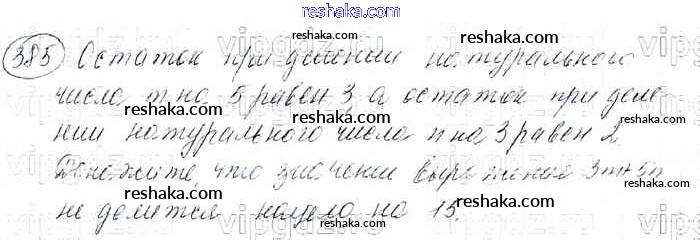 reshaka.com
385 Остаток при делении натурального
reshaka.com
числа m на 5 равен 3, а остаток при деле-
reshaka.com
нии натурального числа n на 3 равен 2
reshaka.com
Докажите, что значение выражение 3m+5n
reshaka.com
не делится нацело на 15.
reshaka.com